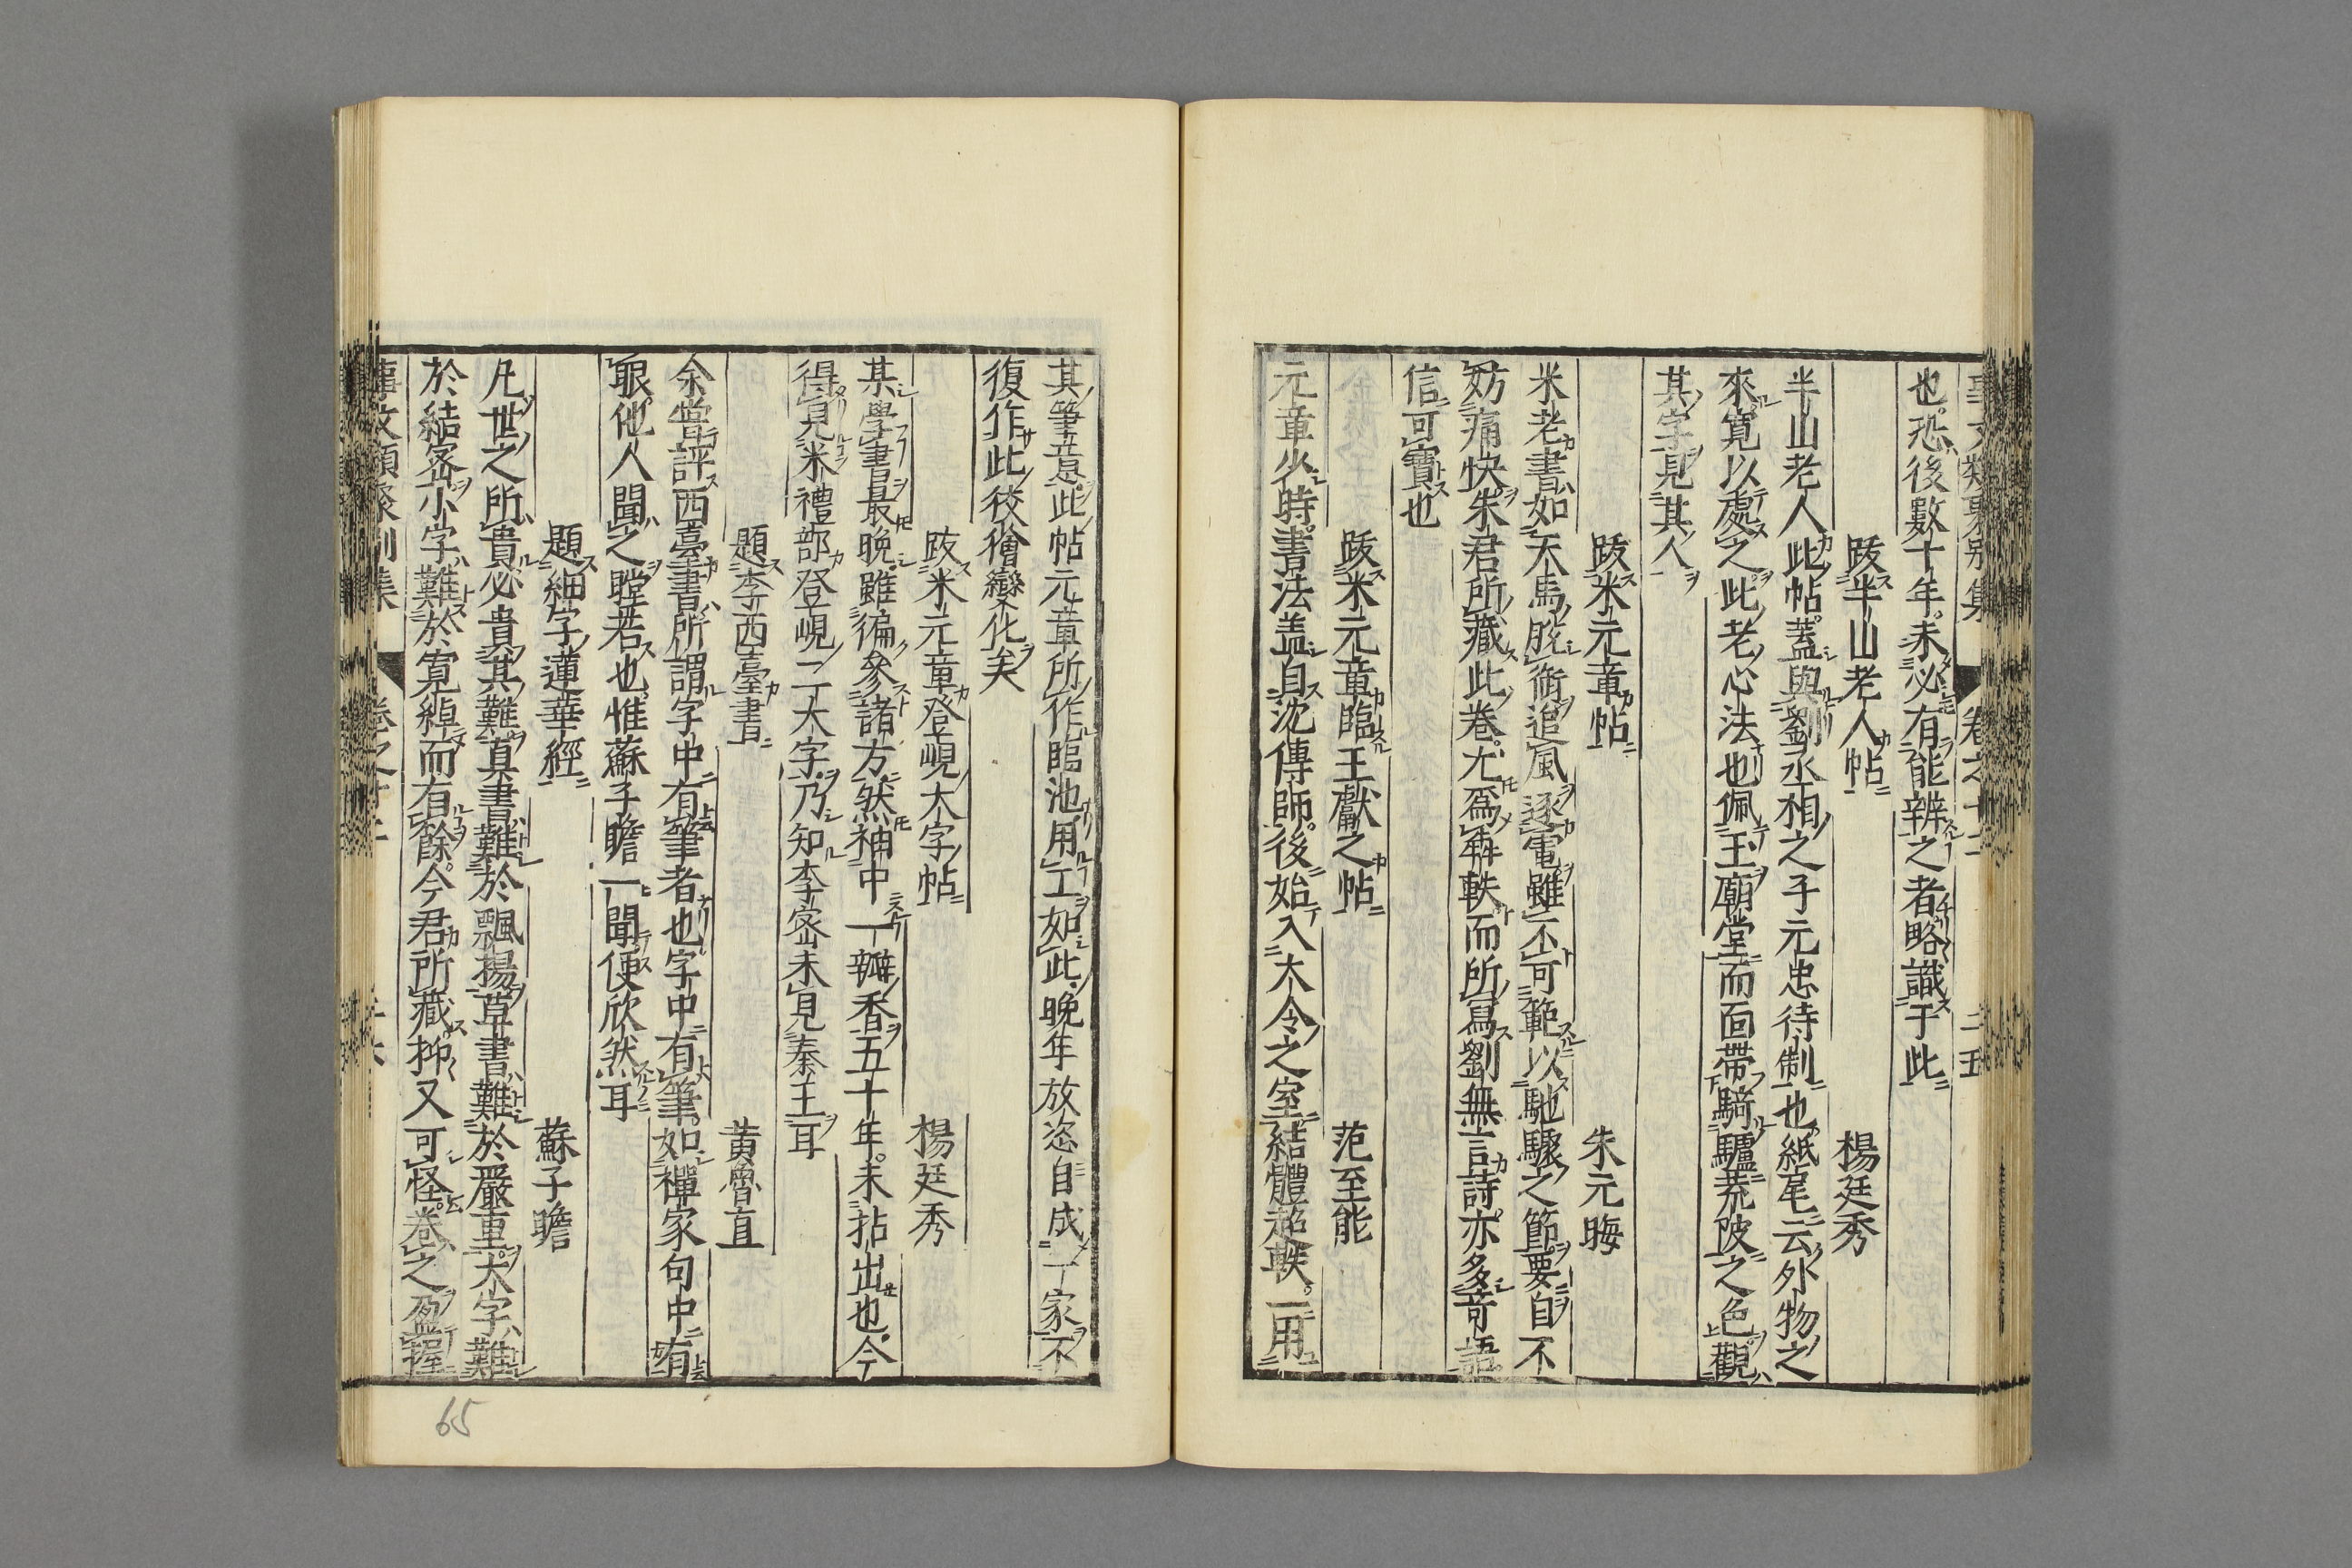 也恐後數十年未必有能辨之者略識于此
跋半山老人帖 楊廷秀
半山老人此帖蓋與劉丞相之子元忠待制也紙尾云外物之
來寬以處之此老心法也佩王廟堂而面帶騎驢荒陂之色觀
其字見其人
跋米元章帖 朱元晦
米老書如天馬脫銜追風逐電雖不可範以馳驟之節要自不
妨痛快朱君所藏此卷尤爲犇軼而所寫劉無言詩亦多奇語
信可寶也
跋米元章臨王獻之帖 范至能
元章少時書法盖自沈傳師後始入大令之室結體超軼一用
其筆意此帖元章所作臨池用工如此晚年放恣自成一家不
復作此狡獪變化矣
跋米元章登峴大字帖 楊廷秀
某學書最晚雖徧參諸方然袖中一瓣香五十年未拈出也今
得見米禮部登峴二大字乃知李密未見秦王耳
題李西臺書 黄魯直
余嘗評西臺書所謂字中有筆者也字中有筆如禪家句中有
眼他人聞之瞠若也惟蘇子瞻一聞便欣然耳
題細字蓮華經 蘇子瞻
凡世之所貴必貴其難真書難於飄揚草書難於嚴重大字難
於結密小字難於寬綽而有餘今君所藏抑又可怪卷之盈握
65